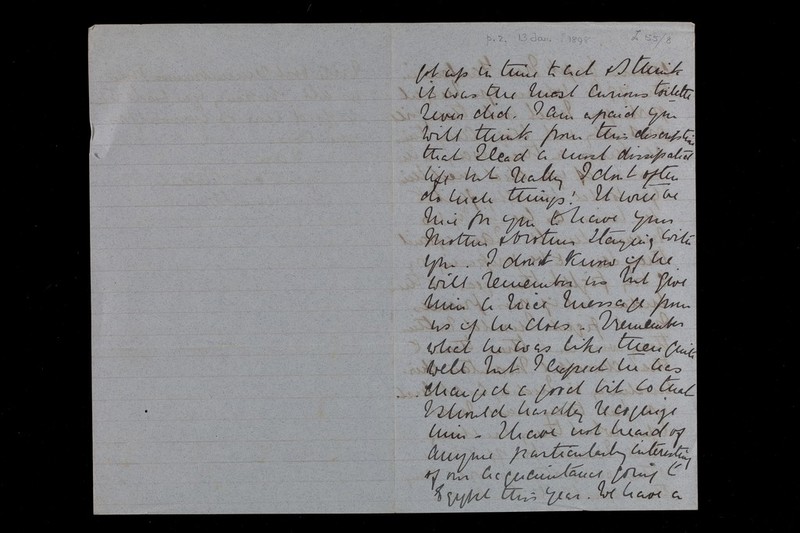 p.2. 13 Jan. 1898
I 55/8
got up in time to eat & I think
it was the most curious toilette
I ever did. I am afraid you
will think from this description
that I lead a most dissipated
life but really I don't often
do such things! It will be
nice for you to have your
Mother & brother staying with
you. I don't know if he
will remember us but give
him a nice message from
us if he does. I remember
what he was like then quite
well but I expect he has
changed a good bit so that
I should hardly recognise
him. I have not heard of
anyone particularly interesting
of our acquaintance going to
Egypt this year. We have a